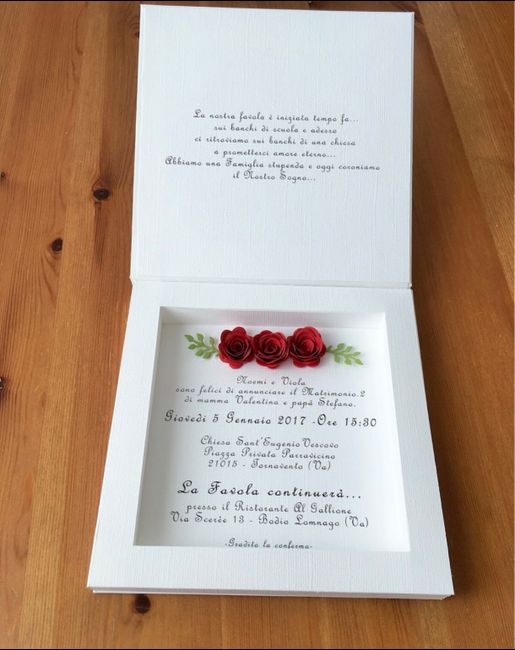 La nostra favola è iniziata tempo fa...
sui banchi di scuola e adesso
ci ritroviamo sui banchi di una chiesa
a prometterci amore eterno...
Abbiamo una Famiglia stupenda e oggi coroniamo
il Nostro Sogno...
Noemi e Viola
sono felici di annunciare il Matrimonio.2
di mamma Valentina e papà Stefano.
Giovedi 5 Gennaio 2017 -Ore 15:30
Chiesa Sant'Eugenio Vescovo
Piazza Privata Parravicino
21015 - Tornavento (Va)
La Favola continuerà...
presso il Ristorante Al Gallione
Via Scerèe 13 - Bodio Lomnago (Va)
-Gradita la conferma-